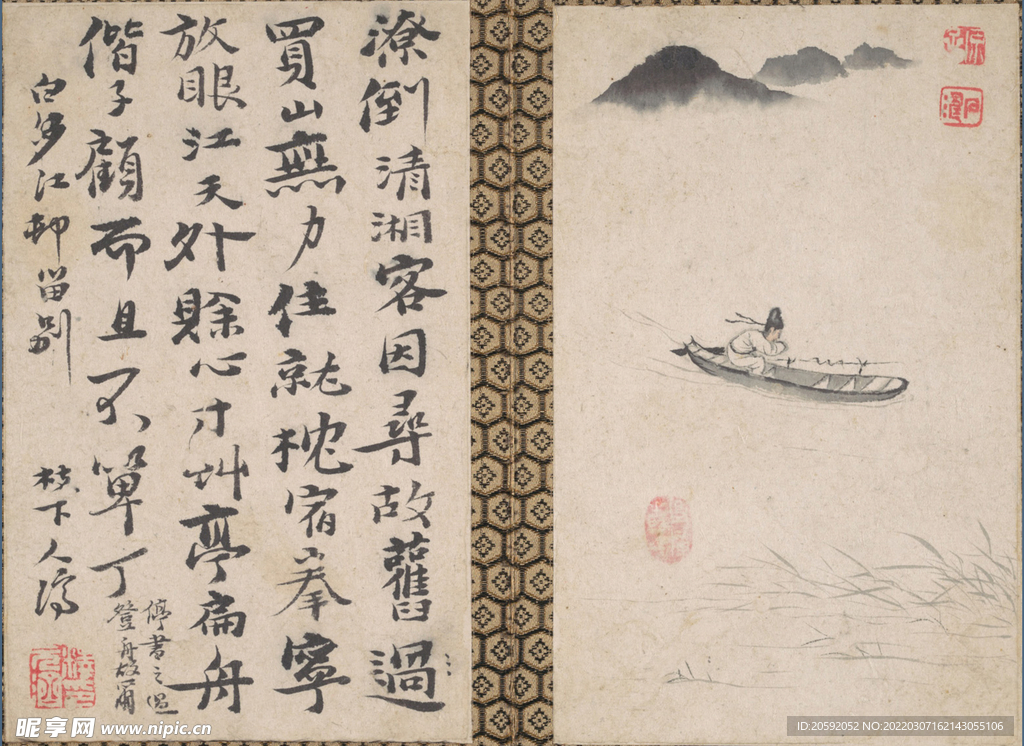 潦倒清湘客因尋故舊過
買山無力住就枕宿拳寧
放眼江天外賖心寸艸亭扁舟
偕子顧而且不單丁
停書之
登舟故爾
白沙江邨留別
枝下人濟
昵享网 www.nipic.cn
ID:20592052 NO:20220307162143055106